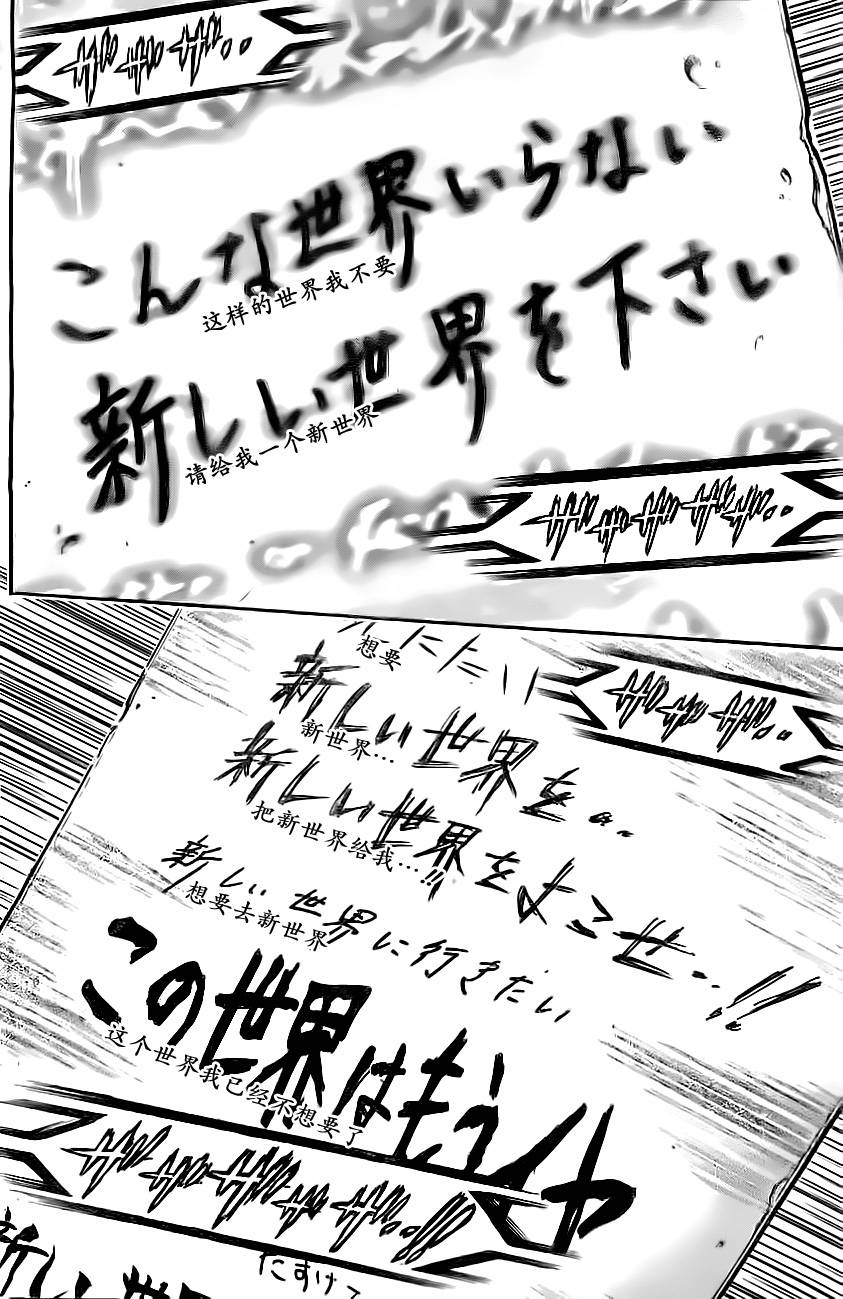 ザザザ..
こんな世界いらない
这样的世界我不要
新しい世界を下さい
请给我一个新世界
ザザザザザ..
想要
ザザザ..
新しい世界を..
新世界…
新しい世界をよこせ..!!
把新世界给我…!!
新しい世界に行きたい
想要去新世界
この世界はもうイヤ
这个世界我已经不想要了
ザザザザザ..!!
たすけて
新しい世界